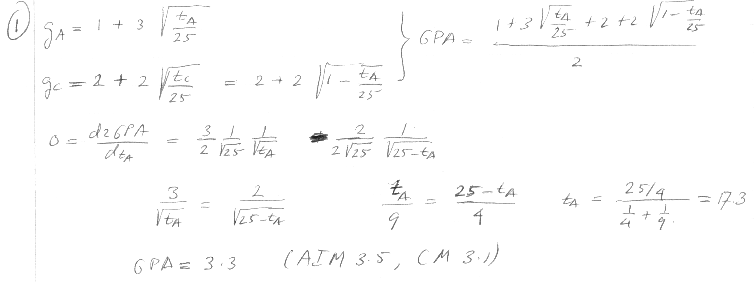 ① g_A = 1 + 3 √(t_A/25)
g_C = 2 + 2 √(t_C/25) = 2 + 2 √(1 - t_A/25) } GPA = (1 + 3 √(t_A/25) + 2 + 2 √(1 - t_A/25)) / 2
0 = d2GPA/dt_A = 3/2 1/√25 1/√t_A - 2/(2√25) 1/√(25-t_A)
3/√t_A = 2/√(25-t_A)    t_A/9 = (25-t_A)/4    t_A = (25/4)/(1/4 + 1/9) = 17.3
GPA = 3.3 (AIM 3.5, CM 3.1)